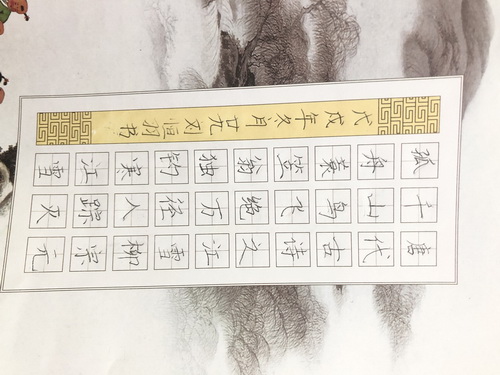 唐代古诗文江雪柳宗元
千山鸟飞绝万径人踪灭
孤舟蓑笠翁独钓寒江雪
戊戌年冬月廿九刘恒羽书